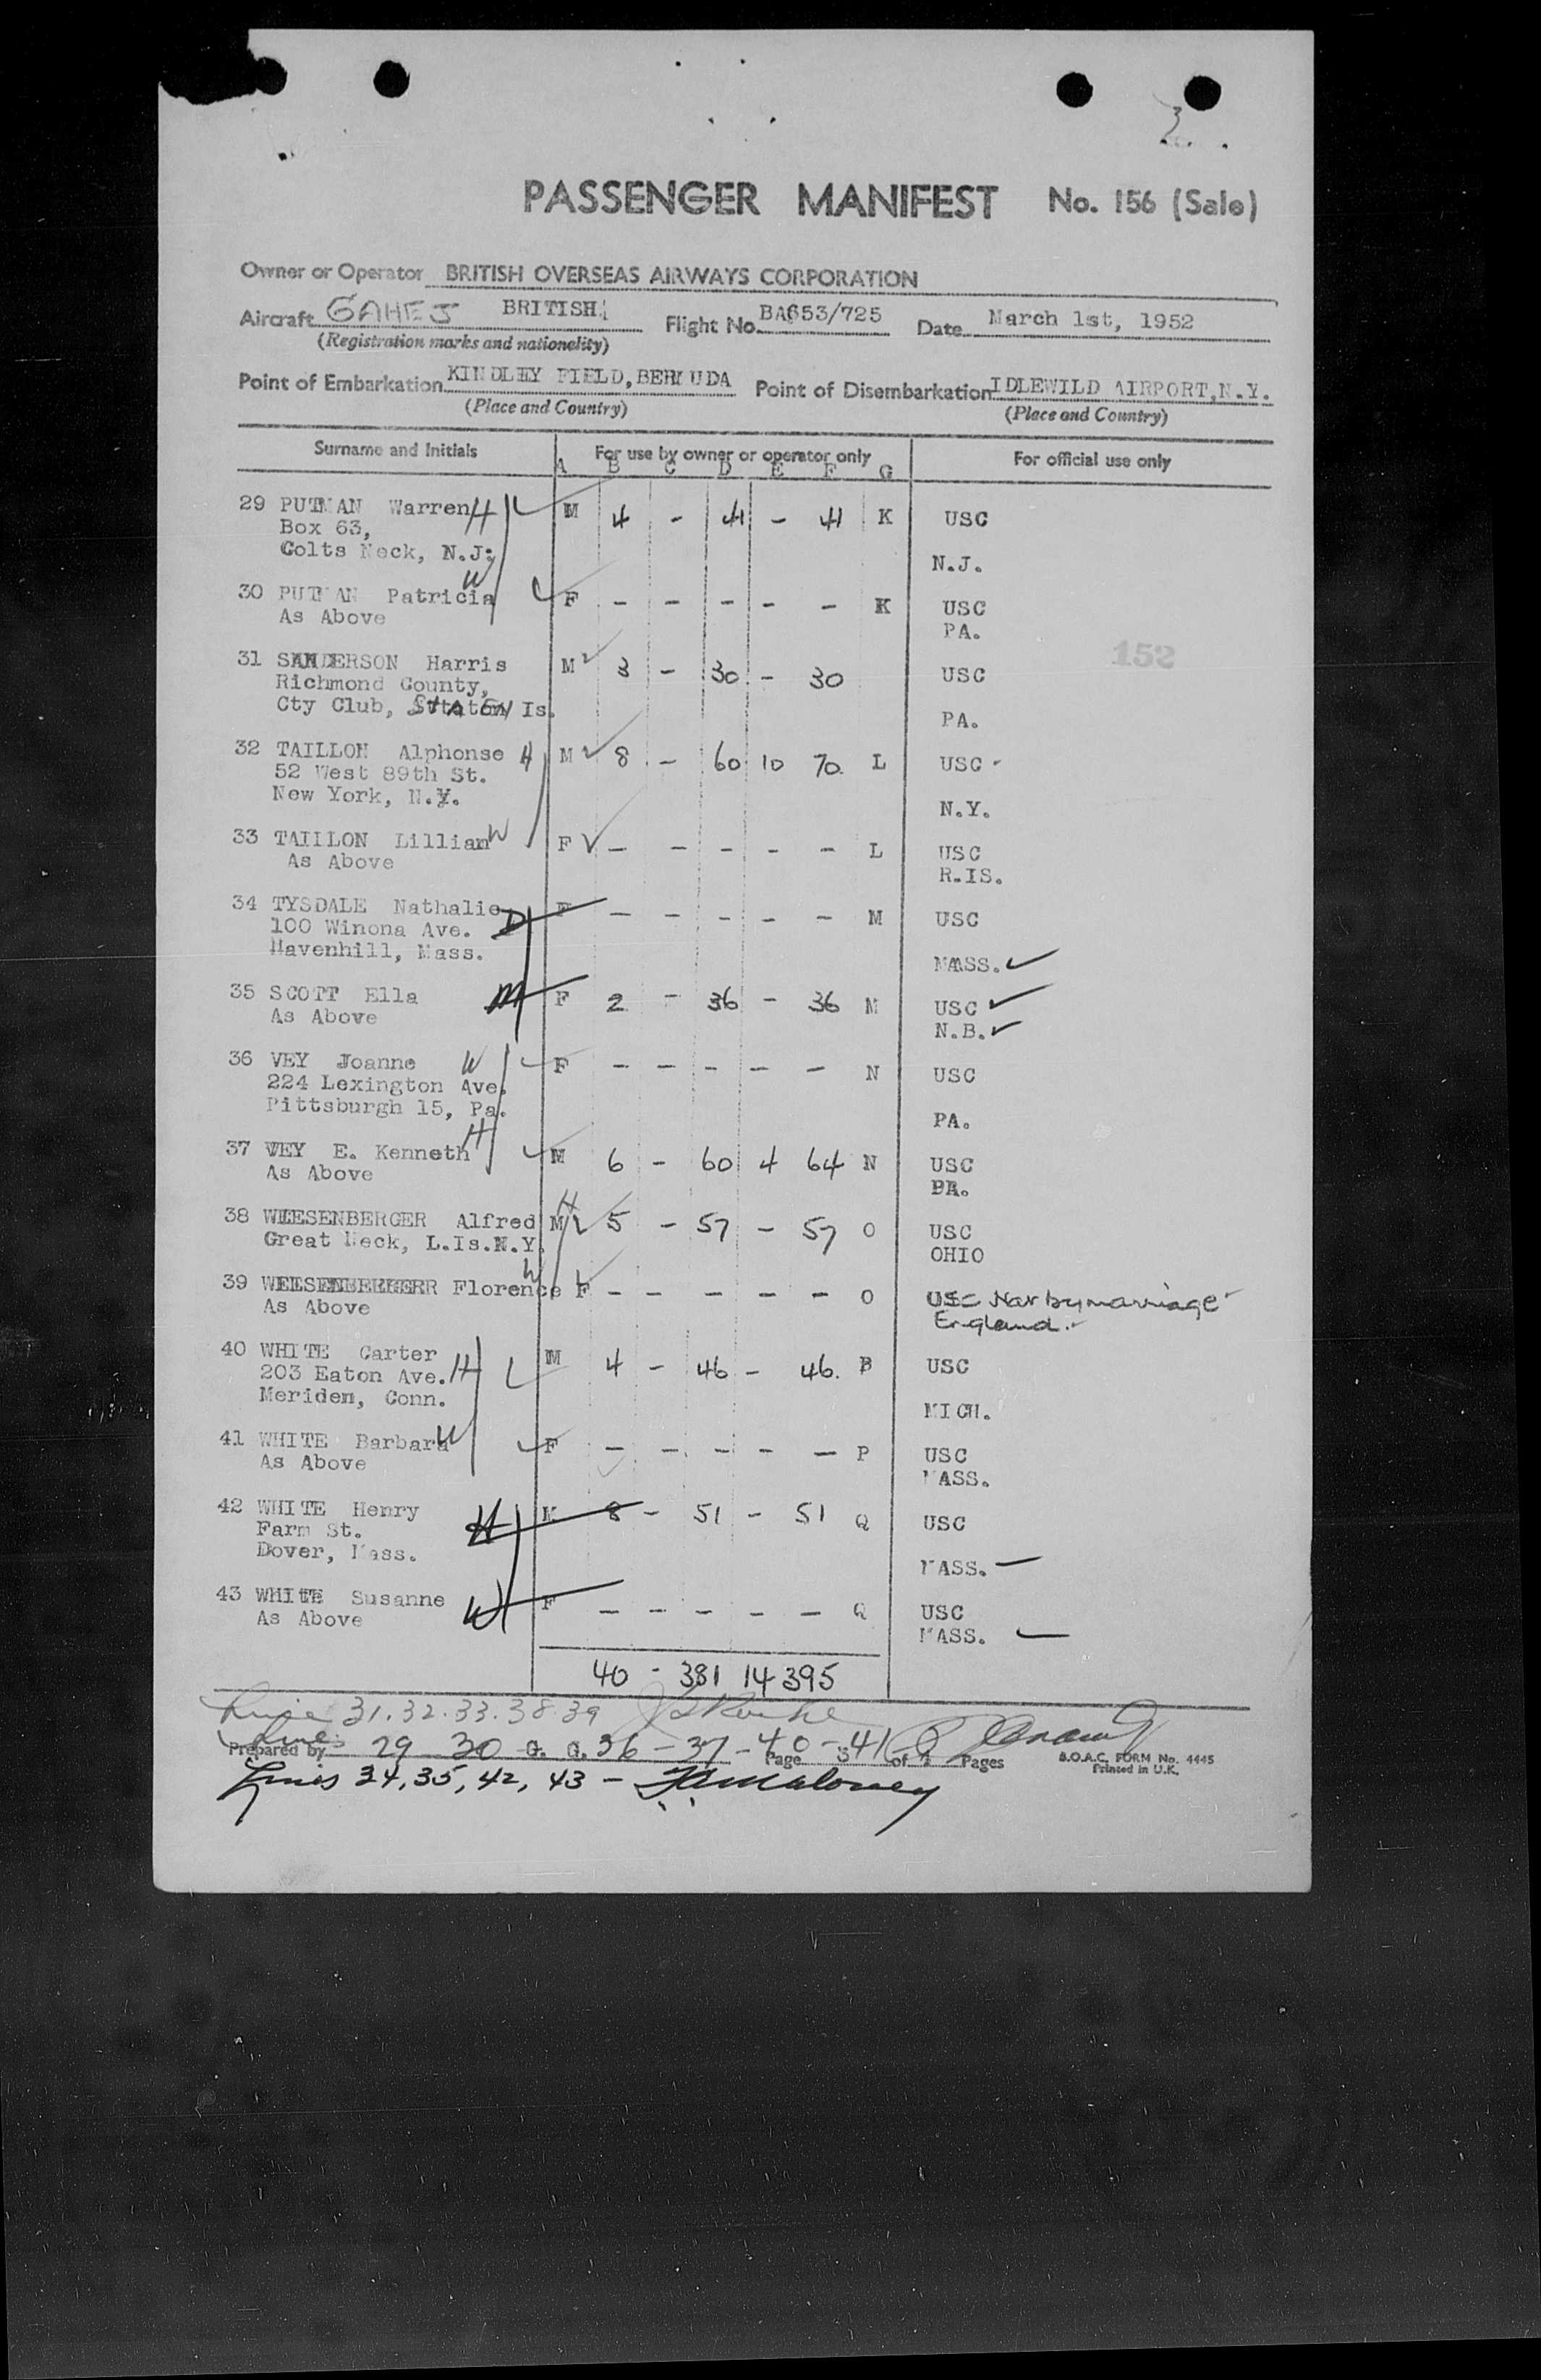 3
PASSENGER MANIFEST No. 156 (Sale)
Owner or Operator BRITISH OVERSEAS AIRWAYS CORPORATION
Aircraft GAHEJ BRITISH Flight No. BA653/725 Date March 1st, 1952
(Registration marks and nationality)
Point of Embarkation KINDLEY FIELD, BERMUDA Point of Disembarkation IDLEWILD AIRPORT, N.Y.
(Place and Country) (Place and Country)
Surname and Initials For use by owner or operator only For official use only
A B C D E F G
29 PUTMAN Warren H M 4 - 41 - 41 K USC
Box 63,
Colts Neck, N.J. N.J.
30 PUTMAN Patricia W F - - - - - K USC
As Above PA.
31 SANDERSON Harris M 3 - 30 - 30 USC
Richmond County, 152
Cty Club, Staten Is. PA.
32 TAILLON Alphonse H M 8 - 60 10 70 L USC
52 West 89th St.
New York, N.Y. N.Y.
33 TAILLON Lillian W F - - - - - L USC
As Above R.IS.
34 TYSDALE Nathalie D F - - - - - M USC
100 Winona Ave.
Havenhill, Mass. MASS.
35 SCOTT Ella M F 2 - 36 - 36 M USC
As Above N.B.
36 VEY Joanne W F - - - - - N USC
224 Lexington Ave.
Pittsburgh 15, Pa. PA.
37 VEY E. Kenneth H M 6 - 60 4 64 N USC
As Above PA.
38 WIESENBERGER Alfred H M 5 - 57 - 57 O USC
Great Neck, L.Is.N.Y. OHIO
39 WIESENBERGER Florence W F - - - - - O USC Nat by marriage
As Above England
40 WHITE Carter M 4 - 46 - 46 B USC
203 Eaton Ave. H
Meriden, Conn. MICH.
41 WHITE Barbara W F - - - - - P USC
As Above MASS.
42 WHITE Henry H M 8 - 51 - 51 Q USC
Farm St.
Dover, Mass. MASS.
43 WHITE Susanne W F - - - - - Q USC
As Above MASS.
40 - 381 14 395
Line 31. 32. 33. 38. 39
Lines 29 30 36 - 37 - 40 - 41
Prepared by Page 3 of Pages B.O.A.C. FORM No. 4445
Printed in U.K.
Lines 34, 35, 42, 43 - Maloney